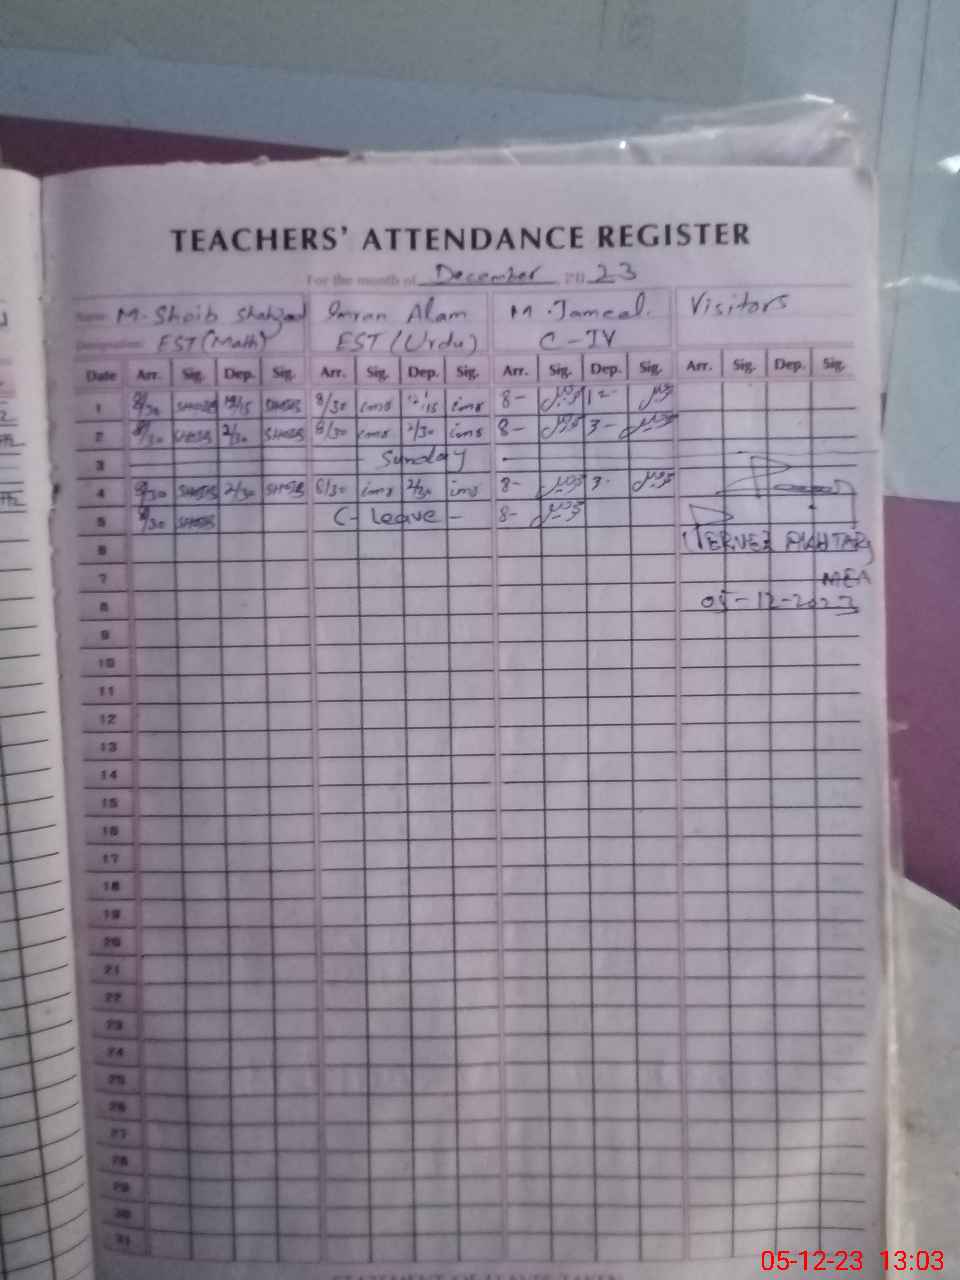 TEACHERS' ATTENDANCE REGISTER
For the month of December 2023
M. Shoib Shahzad Imran Alam M. Jameel. Visitors
Designation EST (Math) EST (Urdu) C-IV
Date Arr. Sig. Dep. Sig. Arr. Sig. Dep. Sig. Arr. Sig. Dep. Sig. Arr. Sig. Dep. Sig.
1 8/30 SHOIB 12/15 SHOIB 8/30 imr 12/15 imr 8- 12-
2 8/30 SHOIB 2/30 SHOIB 8/30 imr 2/30 imr 8- 3-
3 Sunday
4 8/30 SHOIB 2/30 SHOIB 8/30 imr 2/30 imr 8- 3-
5 8/30 SHOIB C- Leave - 8-
6 (PERVEZ AKHTAR)
7 MEA
8 05-12-2023
9
10
11
12
13
14
15
16
17
18
19
20
21
22
23
24
25
26
27
28
29
30
31
05-12-23 13:03